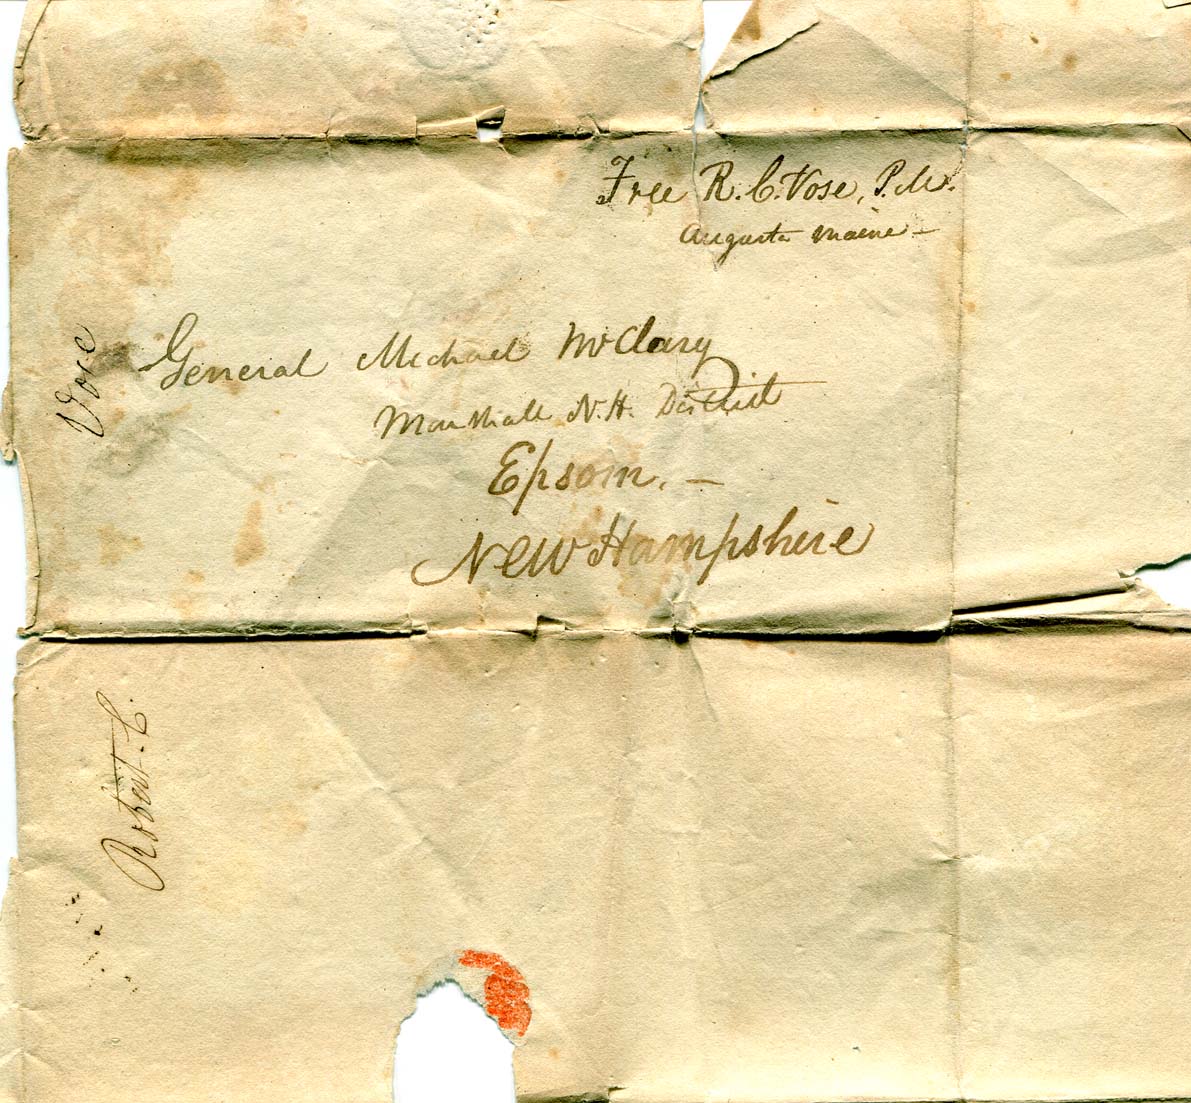 Free R. C. Vose, P.M.
Augusta Maine –
General Michael McClary
Marshall N.H. District
Epsom. –
New Hampshire
Vose
Robert C.